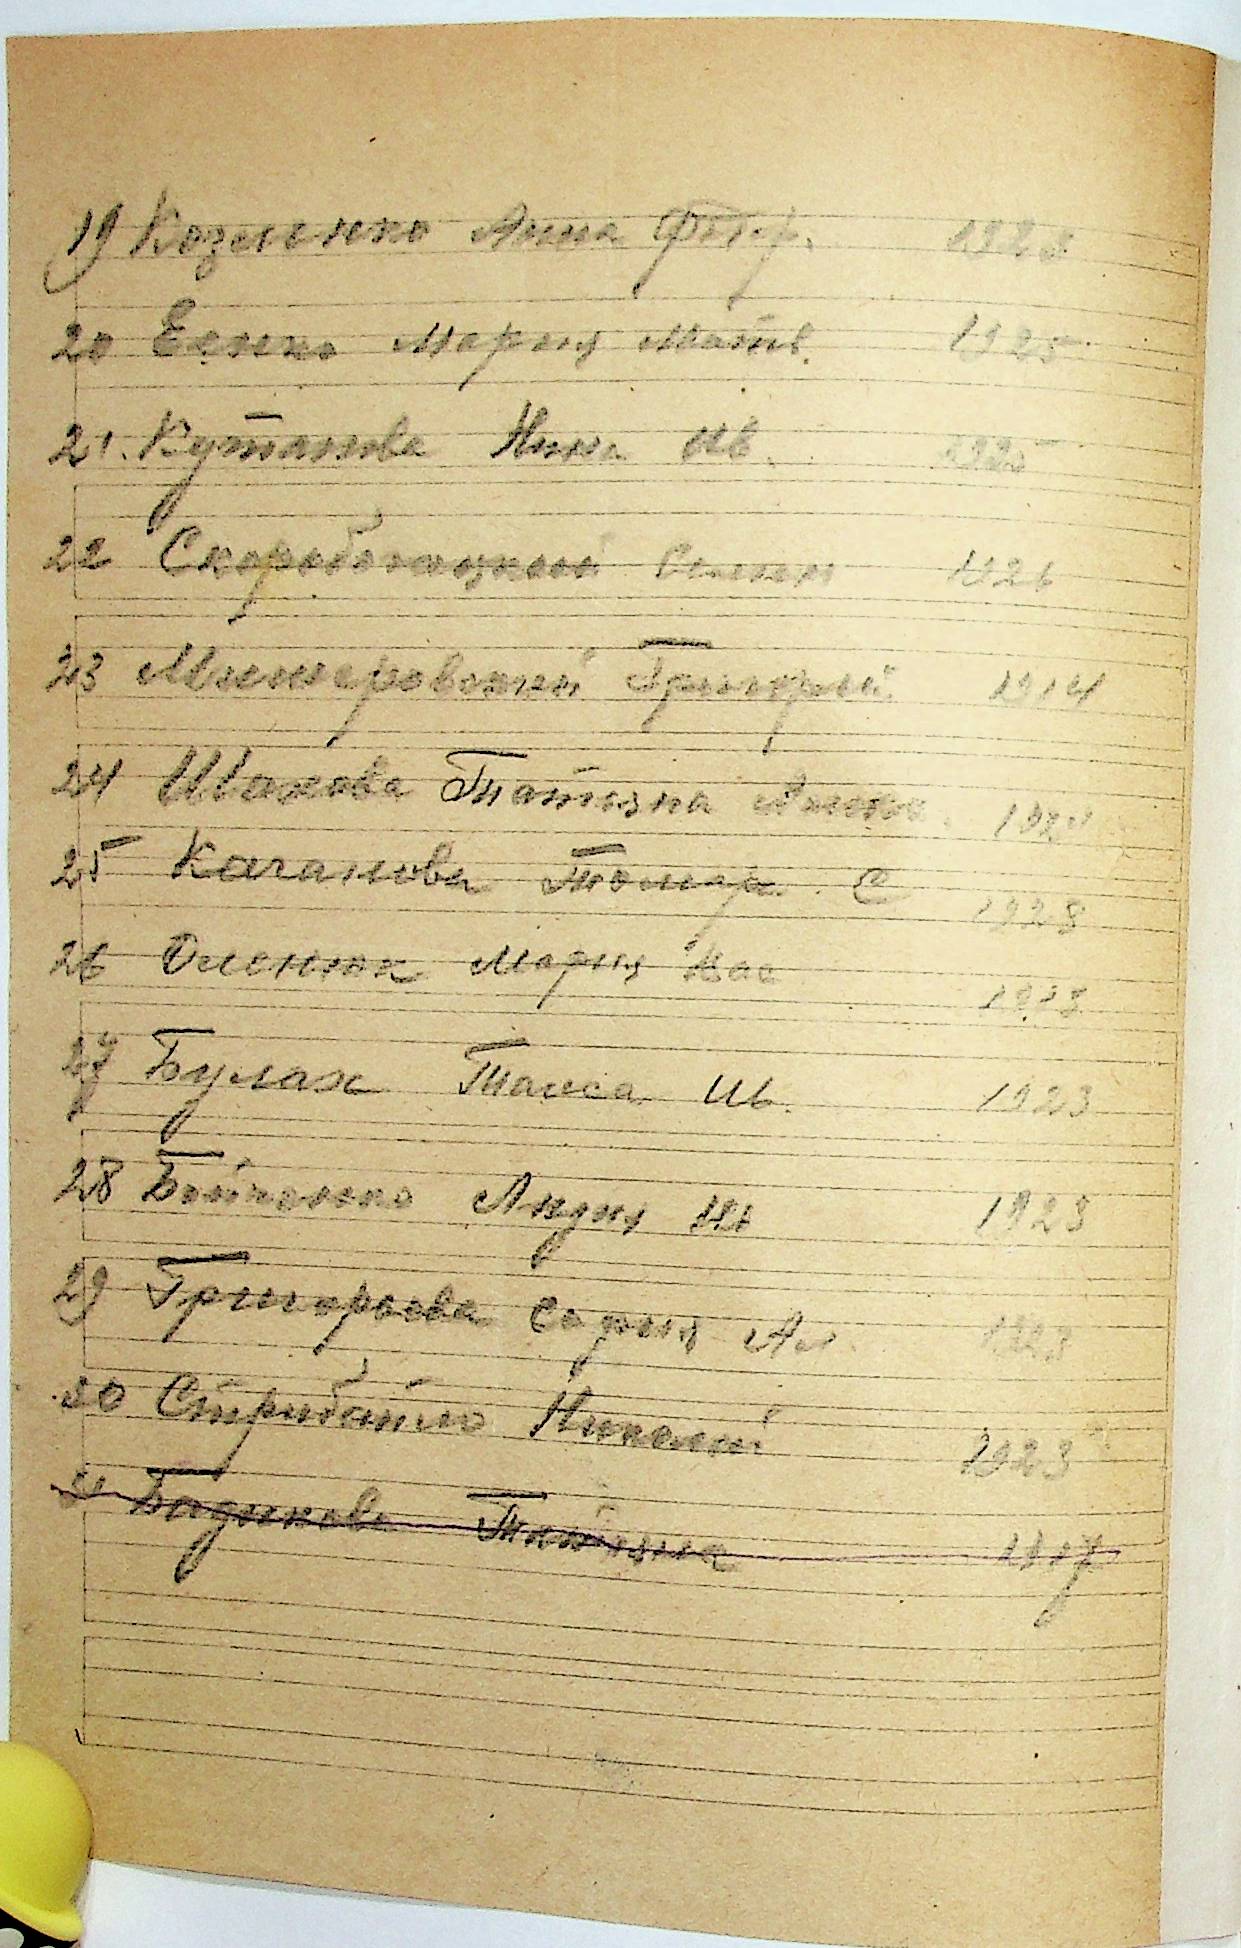 19) Козленко Анна Фёдр. 1928
20 Еенко Мария Матв. 1925
21. Кутанова Нина Ив. 1925
22 Скоробогацкий Семен 1926
23 Григорий 1914
24 Шахова Татьяна
25 Качанова Тамар. С 1923
26 Оленюк Мария Вас
27 Булах Таиса Ив. 1923
28 Бойченко Лидия Ив 1923
29) Григорьева Софья Ал 1923
30 Стрибайло Николай 1923
31 Бадикова Татьяна 1917